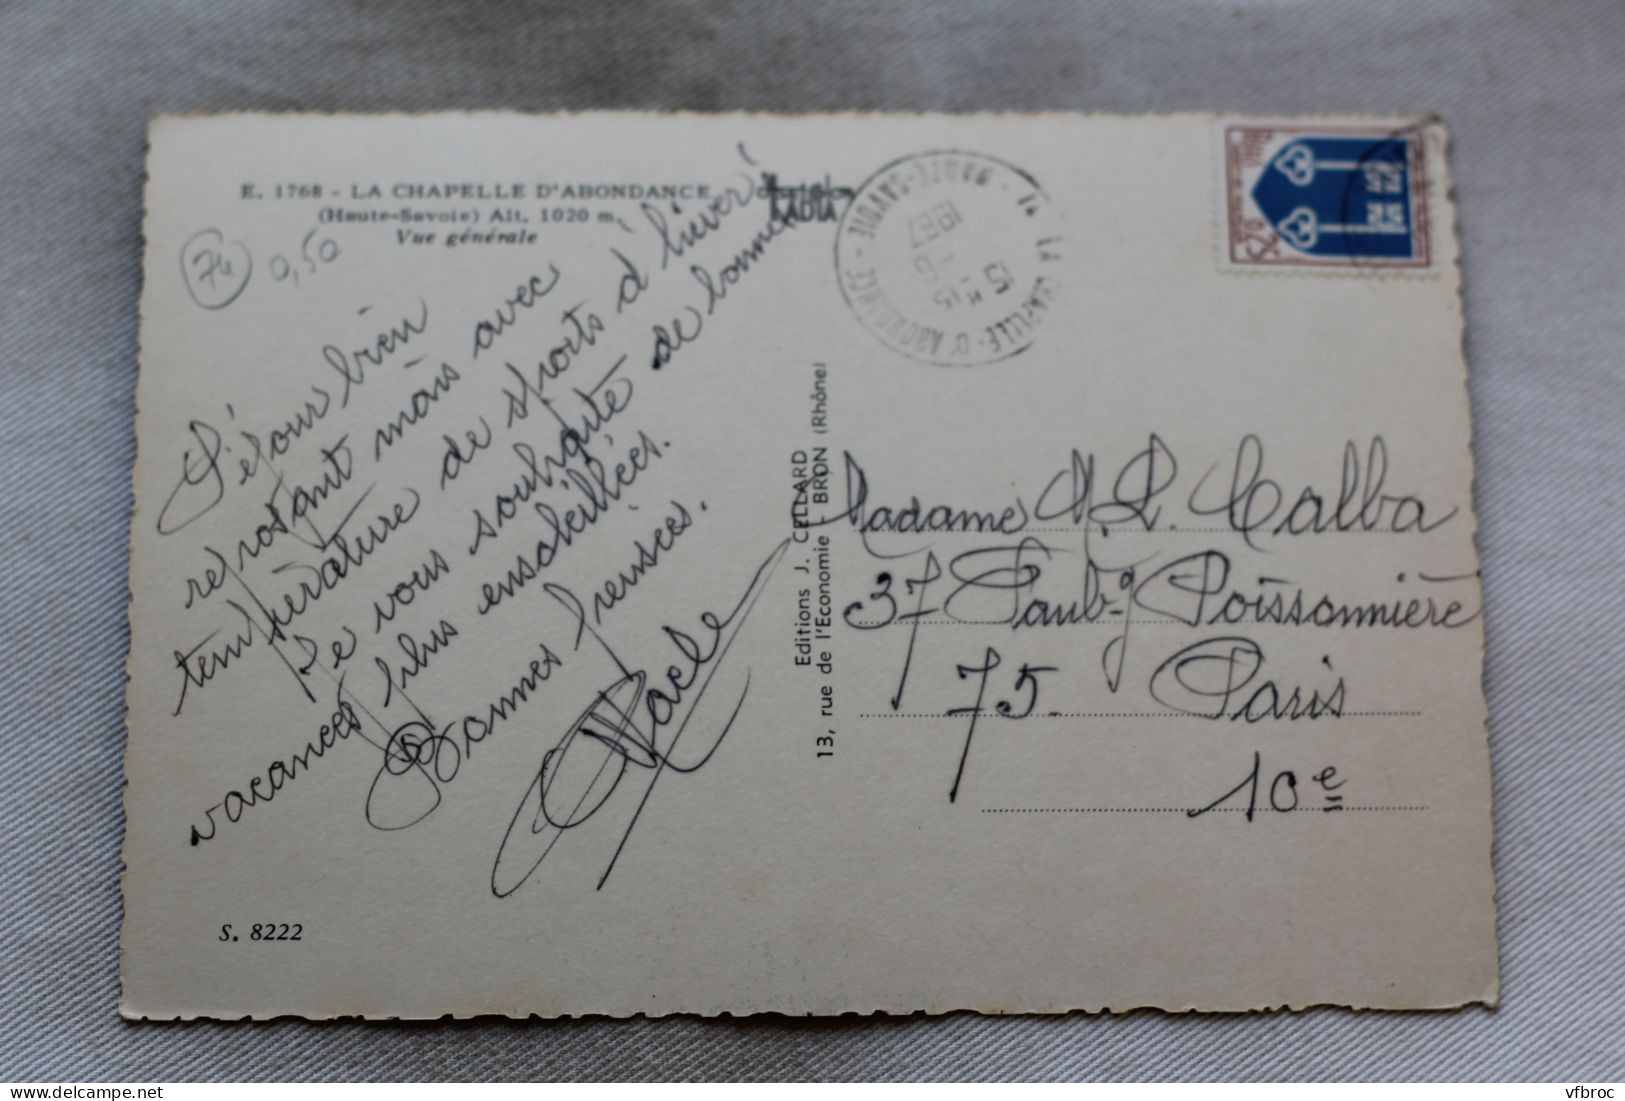 E. 1768 - LA CHAPELLE D'ABONDANCE
(Haute-Savoie) Alt. 1020 m.
Vue générale
74
0,50
Séjour bien
reposant mais avec
température de sports d'hiver
Je vous souhaite de bonnes
vacances plus ensoleillées.
Bonnes pensées.
S. 8222
Editions J. CELLARD
13, rue de l'Economie - BRON (Rhône)
RADIA
74 LA CHAPELLE-D'ABONDANCE - HAUTE-SAVOIE -
15
1967
0,25
Madame M. L. Calba
37 Faubg Poissonnière
75. Paris
10e
vfbroc